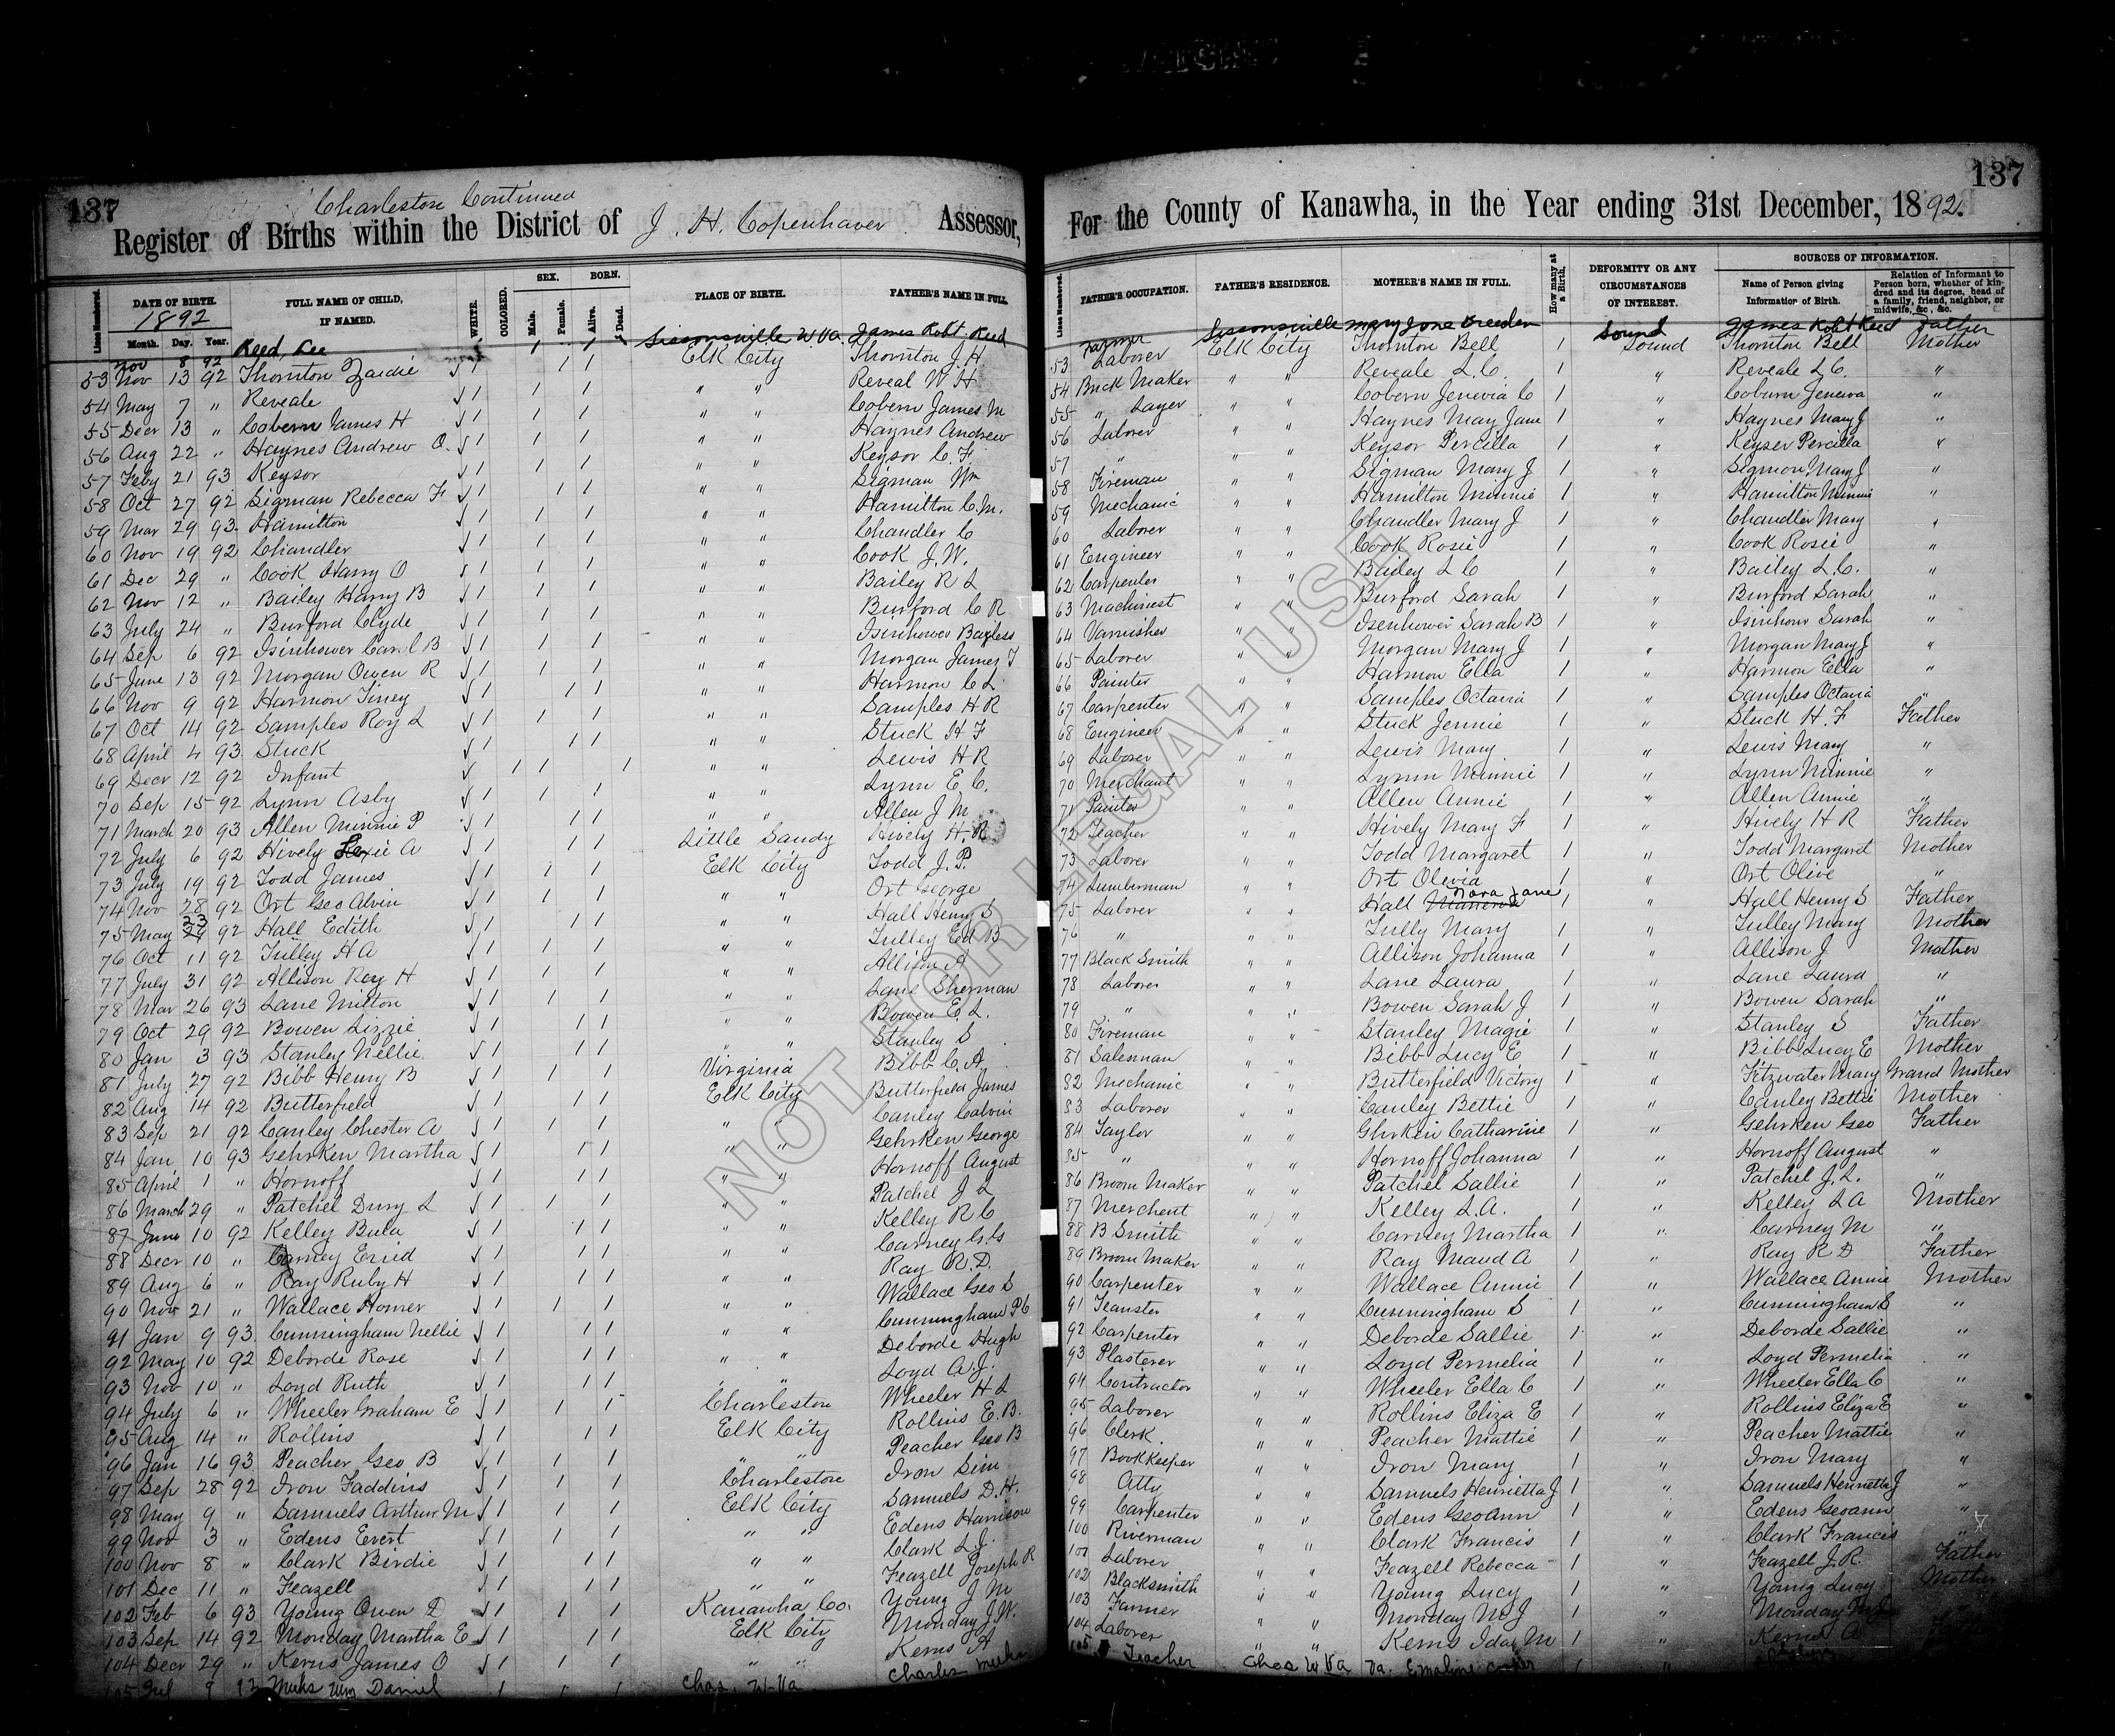 137
Charleston Continued
Register of Births within the District of J. H. Copenhaver Assessor,
Lines Numbered. DATE OF BIRTH. 1892 Month. Day. Year. FULL NAME OF CHILD, IF NAMED. WHITE. COLORED. SEX. Male. Female. BORN. Alive. Dead. PLACE OF BIRTH. FATHER'S NAME IN FULL.
Nov 8 92 Reed, Lee 1 1 Sissonsville W.Va. James Robt Reed
53 Nov 13 92 Thornton Zaidie √ 1 1 1 Elk City Thornton J. H
54 May 7 " Reveale √ 1 1 1 " " Reveal W H
55 Decr 13 " Cobern James H √ 1 1 1 " " Cobern James M
56 Aug 22 " Haynes Andrew O. √ 1 1 1 " " Haynes Andrew
57 Feby 21 93 Keysor √ 1 1 1 " " Keysor C. F
58 Oct 27 92 Sigman Rebecca F √ 1 1 1 " " Sigman Wm
59 Mar 29 93. Hamilton √ 1 1 1 " " Hamilton C. M.
60 Nov 19 92 Chandler √ 1 1 1 " " Chandler C
61 Dec 29 " Cook Harry O √ 1 1 1 " " Cook J. W.
62 Nov 12 " Bailey Harry B √ 1 1 1 " " Bailey R L
63 July 24 " Burford Clyde √ 1 1 1 " " Burford C R
64 Sep 6 92 Isinhower Carl B √ 1 1 1 " " Isinhower Bayless
65 June 13 92 Morgan Owen R √ 1 1 1 " " Morgan James T
66 Nov 9 92 Harmon Tiney √ 1 1 1 " " Harmon C L
67 Oct 14 92 Samples Roy L √ 1 1 1 " " Samples H R
68 April 4 93 Stuck √ 1 1 1 " " Stuck H F
69 Decr 12 92 Infant √ 1 1 1 " " Lewis H R
70 Sep 15 92 Lynn Asby √ 1 1 1 " " Lynn E. C.
71 March 20 93 Allen Minnie P √ 1 1 1 " " Allen J M
72 July 6 92 Hively Lexie A √ 1 1 1 Little Sandy Hively H. R
73 July 19 92 Todd James √ 1 1 1 Elk City Todd J. P.
74 Nov 28 92 Ort Geo Alvin √ 1 1 1 " " Ort George
75 May 23 92 Hall Edith √ 1 1 1 " " Hall Henry S
76 Oct 11 92 Tulley H A √ 1 1 1 " " Tulley Ed B
77 July 31 92 Allison Ray H √ 1 1 1 " " Allison A
78 Mar 26 93 Lane Milton √ 1 1 1 " " Lane Sherman
79 Oct 29 92 Bowen Lizzie √ 1 1 1 " " Bowen E. L.
80 Jan 3 93 Stanley Nellie √ 1 1 1 " " Stanley S
81 July 27 92 Bibb Henry B √ 1 1 1 Virginia Bibb C. A
82 Aug 14 92 Butterfield √ 1 1 1 Elk City Butterfield James
83 Sep 21 92 Canley Chester A √ 1 1 1 " " Canley Calvin
84 Jan 10 93 Gehrken Martha √ 1 1 1 " " Gehrken George
85 April 1 " Hornoff √ 1 1 1 " " Hornoff August
86 March 29 " Patchel Dury L √ 1 1 1 " " Patchel J L
87 June 10 92 Kelley Bula √ 1 1 1 " " Kelley R C
88 Decr 10 " Carney Enid √ 1 1 1 " " Carney G. G
89 Aug 6 " Ray Ruby H √ 1 1 1 " " Ray R. D.
90 Nov 21 " Wallace Homer √ 1 1 1 " " Wallace Geo S
91 Jan 9 93. Cunningham Nellie √ 1 1 1 " " Cunningham P C
92 May 10 92 Deborde Rose √ 1 1 1 " " Deborde Hugh
93 Nov 10 " Loyd Ruth √ 1 1 1 " " Loyd A. J.
94 July 6 " Wheeler Graham E √ 1 1 1 Charleston Wheeler H L
95 Aug 14 " Rollins √ 1 1 1 Elk City Rollins E. B.
96 Jan 16 93 Peacher Geo B √ 1 1 1 " " Peacher Geo B
97 Sep 28 92 Iron Faddins √ 1 1 1 Charleston Iron Sim
98 May 9 " Samuels Arthur M √ 1 1 1 Elk City Samuels D. H.
99 Nov 3 " Edens Evert √ 1 1 1 " " Edens Harrison
100 Nov 8 " Clark Birdie √ 1 1 1 " " Clark L. J.
101 Dec 11 " Feazell √ 1 1 1 " " Feazell Joseph R
102 Feb 6 93 Young Owen D √ 1 1 1 Kanawha Co. Young J M
103 Sep 14 92 Monday Martha E √ 1 1 1 Elk City Monday J. W.
104 Decr 29 " Kerns James O √ 1 1 1 " " Kerns A
105 Jul 9 92 Meeks Wm Daniel 1 1 1 Chas. W-Va Charles Meeks
137
For the County of Kanawha, in the Year ending 31st December, 1892.
Lines Numbered. FATHER'S OCCUPATION. FATHER'S RESIDENCE. MOTHER'S NAME IN FULL. How many at a Birth. DEFORMITY OR ANY CIRCUMSTANCES OF INTEREST. SOURCES OF INFORMATION. Name of Person giving Information of Birth. Relation of Informant to Person born, whether of kindred and its degree, head of a family, friend, neighbor, or midwife, &c., &c.
Farmer Sissonsville Mary Jane Breeden Sound James Robt Reed Father
53 Laborer Elk City Thornton Bell 1 Sound Thornton Bell Mother
54 Brick Maker " " Reveale L. C. 1 " Reveale L C. "
55 " Layer " " Cobern Jenevia C 1 " Coburn Jeneva "
56 Laborer " " Haynes May Jane 1 " Haynes Mary J "
57 " " " Keysor Percilla 1 " Keyser Percilla "
58 Fireman " " Sigman Mary J 1 " Sigmon Mary J "
59 Mechanic " " Hamilton Minnie 1 " Hamilton Minnie "
60 Laborer " " Chandler Mary J 1 " Chandler Mary "
61 Engineer " " Cook Rosie 1 " Cook Rosie "
62 Carpenter " " Bailey L C 1 " Bailey L. C. "
63 Machinest " " Burford Sarah 1 " Burford Sarah "
64 Varnisher " " Isenhower Sarah B 1 " Isinhour Sarah "
65 Laborer " " Morgan Mary J 1 " Morgan Mary J "
66 Painter " " Harmon Ella 1 " Harmon Ella "
67 Carpenter " " Samples Octavia 1 " Samples Octavia "
68 Engineer " " Stuck Jennie 1 " Stuck H. F Father
69 Laborer " " Lewis Mary 1 " Lewis Mary "
70 Merchant " " Lynn Minnie 1 " Lynn Minnie "
71 Painter " " Allen Annie 1 " Allen Annie "
72 Teacher " " Hively Mary F 1 " Hively H R Father
73 Laborer " " Todd Margaret 1 " Todd Margaret Mother
74 Lumberman " " Ort Olevia 1 " Ort Olive "
75 Laborer " " Hall Nora Jane 1 " Hall Henry S Father
76 " " " Tully Mary 1 " Tulley Mary Mother
77 Black Smith " " Allison Johanna 1 " Allison J Mother
78 Laborer " " Lane Laura 1 " Lane Laura "
79 " " " Bowen Sarah J 1 " Bowen Sarah "
80 Fireman " " Stanley Magie 1 " Stanley S Father
81 Salesman " " Bibb Lucy E 1 " Bibb Lucy E Mother
82 Mechanic " " Butterfield Victory 1 " Fitzwater Mary Grand Mother
83 Laborer " " Canley Bettie 1 " Canley Bettie Mother
84 Taylor " " Ghrken Catharine 1 " Gehrken Geo Father
85 " " " Hornoff Johanna 1 " Hornoff August "
86 Broom Maker " " Patchel Sallie 1 " Patchel J. L. "
87 Merchent " " Kelley L. A. 1 " Kelley L A Mother
88 B Smith " " Carney Martha 1 " Carney M "
89 Broom Maker " " Ray Maud A 1 " Ray R D Father
90 Carpenter " " Wallace Annie 1 " Wallace Annie Mother
91 Teamster " " Cunningham S 1 " Cunningham S "
92 Carpenter " " Deborde Sallie 1 " Deborde Sallie "
93 Plasterer " " Loyd Permelia 1 " Loyd Permelia "
94 Contractor " " Wheeler Ella C 1 " Wheeler Ella C "
95 Laborer " " Rollins Eliza E 1 " Rollins Eliza E "
96 Clerk " " Peacher Mattie 1 " Peacher Mattie "
97 Bookkeeper " " Iron Mary 1 " Iron Mary "
98 Atty " " Samuels Henrietta J 1 " Samuels Henrietta J "
99 Carpenter " " Edens Geoann 1 " Edens Geoann "
100 Riverman " " Clark Francis 1 " Clark Francis "
101 Laborer " " Feazell Rebecca 1 " Feazell J. R. Father
102 Blacksmith " " Young Lucy 1 " Young Lucy Mother
103 Farmer " " Monday M J 1 " Monday M J
104 Laborer " " Kerns Ida M 1 " Kerns A
105 Teacher Chas W Va Va. Emaline 1
NOT FOR LEGAL USE